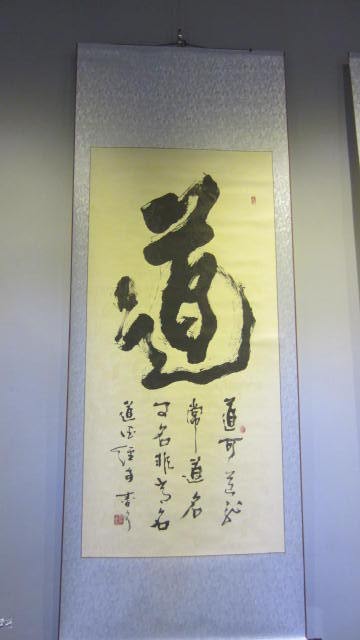 道
道可道非
常道名
可名非常名
道德經句